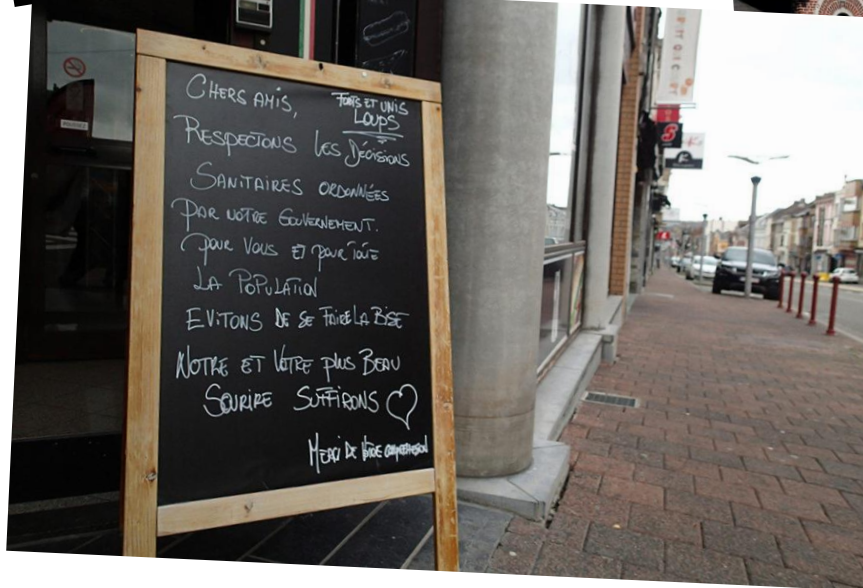 CHERS AMIS,
FORTS ET UNIS
LOUPS
RESPECTONS LES DÉCISIONS
SANITAIRES ORDONNÉES
PAR NOTRE GOUVERNEMENT.
POUR VOUS ET POUR TOUTE
LA POPULATION
EVITONS DE SE FAIRE LA BISE
NOTRE ET VOTRE PLUS BEAU
SOURIRE SUFFIRONS
MERCI DE VOTRE COMPRÉHENSION